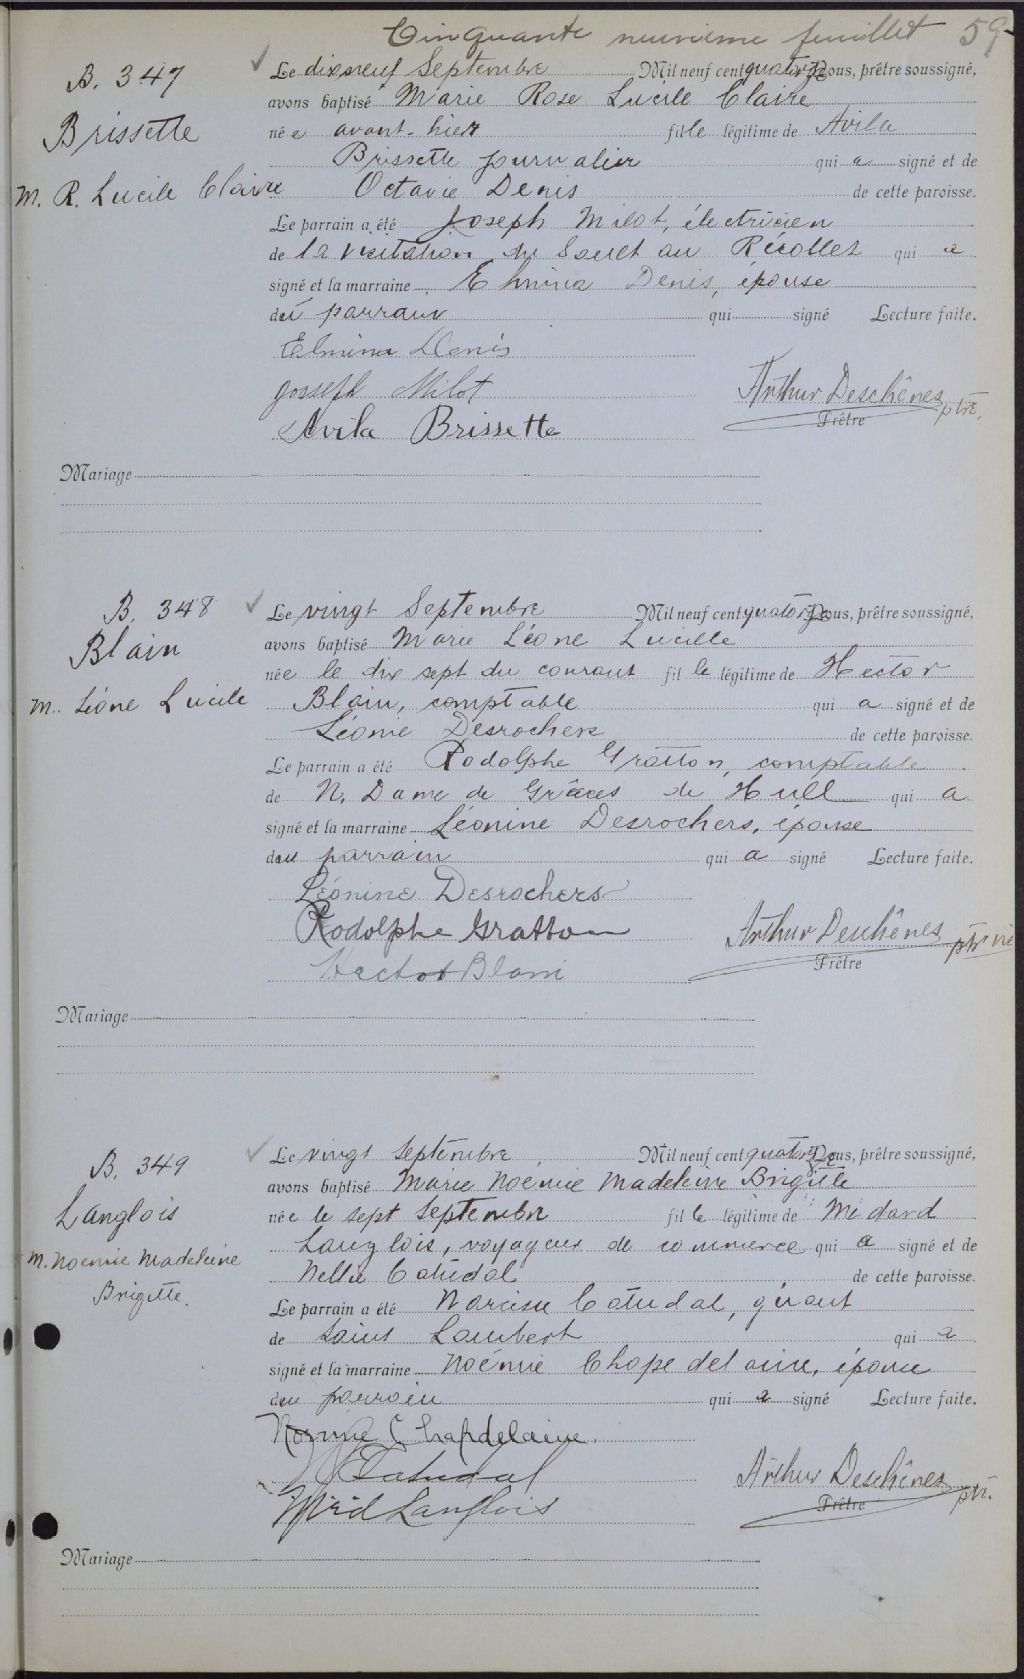 Cinquante neuvième feuillet 59
B. 347
Brissette
M. R. Lucile Claire
Le dixneuf Septembre Mil neuf cent quatorze Nous, prêtre soussigné,
avons baptisé Marie Rose Lucile Claire
née avant-hier fille légitime de Avila
Brissette journalier qui a signé et de
Octavie Denis de cette paroisse.
Le parrain a été Joseph Milot, électricien
de la Visitation du Sault au Récollet qui a
signé et la marraine Elmina Denis, épouse
du parrain qui signé Lecture faite.
Elmina Denis
Joseph Milot
Avila Brissette
Arthur Deschênes ptre.
Prêtre
Mariage
B. 348
Blain
M. Léone Lucile
Le vingt Septembre Mil neuf cent quatorze Nous, prêtre soussigné,
avons baptisé Marie Léone Lucille
née le dix sept du courant fille légitime de Hector
Blain, comptable qui a signé et de
Léonie Desrochers de cette paroisse.
Le parrain a été Rodolphe Gratton, comptable
de N. Dame de Grâces de Hull qui a
signé et la marraine Léonine Desrochers, épouse
du parrain qui a signé Lecture faite.
Léonine Desrochers
Rodolphe Gratton
Hector Blain
Arthur Deschênes ptre vic
Prêtre
Mariage
B. 349
Langlois
M. Noemie Madeleine
Brigitte.
Le vingt Septembre Mil neuf cent quatorze Nous, prêtre soussigné,
avons baptisé Marie Noémie Madeleine Brigitte
née le sept Septembre fille légitime de Médard
Langlois, voyageur de commerce qui a signé et de
Nellie Catudal de cette paroisse.
Le parrain a été Narcisse Catudal, gérant
de Saint Lambert qui a
signé et la marraine Noémie Chapedelaine, épouse
du parrain qui a signé Lecture faite.
Noémie Chapdelaine.
N Catudal
Méd Langlois
Arthur Deschênes ptr.
Prêtre
Mariage